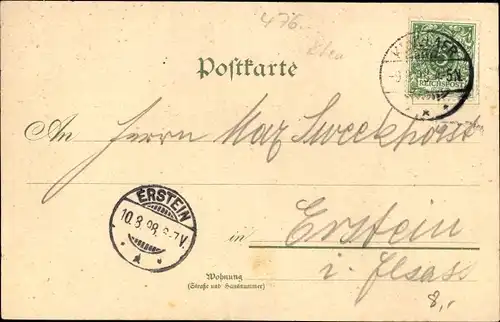 476.
Postkarte
5
REICHSPOST
An Herrn Max Sweekhorst
ERSTEIN
10.8.98. 6-7V.
in Erstein
i. Elsass
Wohnung
(Straße und Hausnummer)
8,-